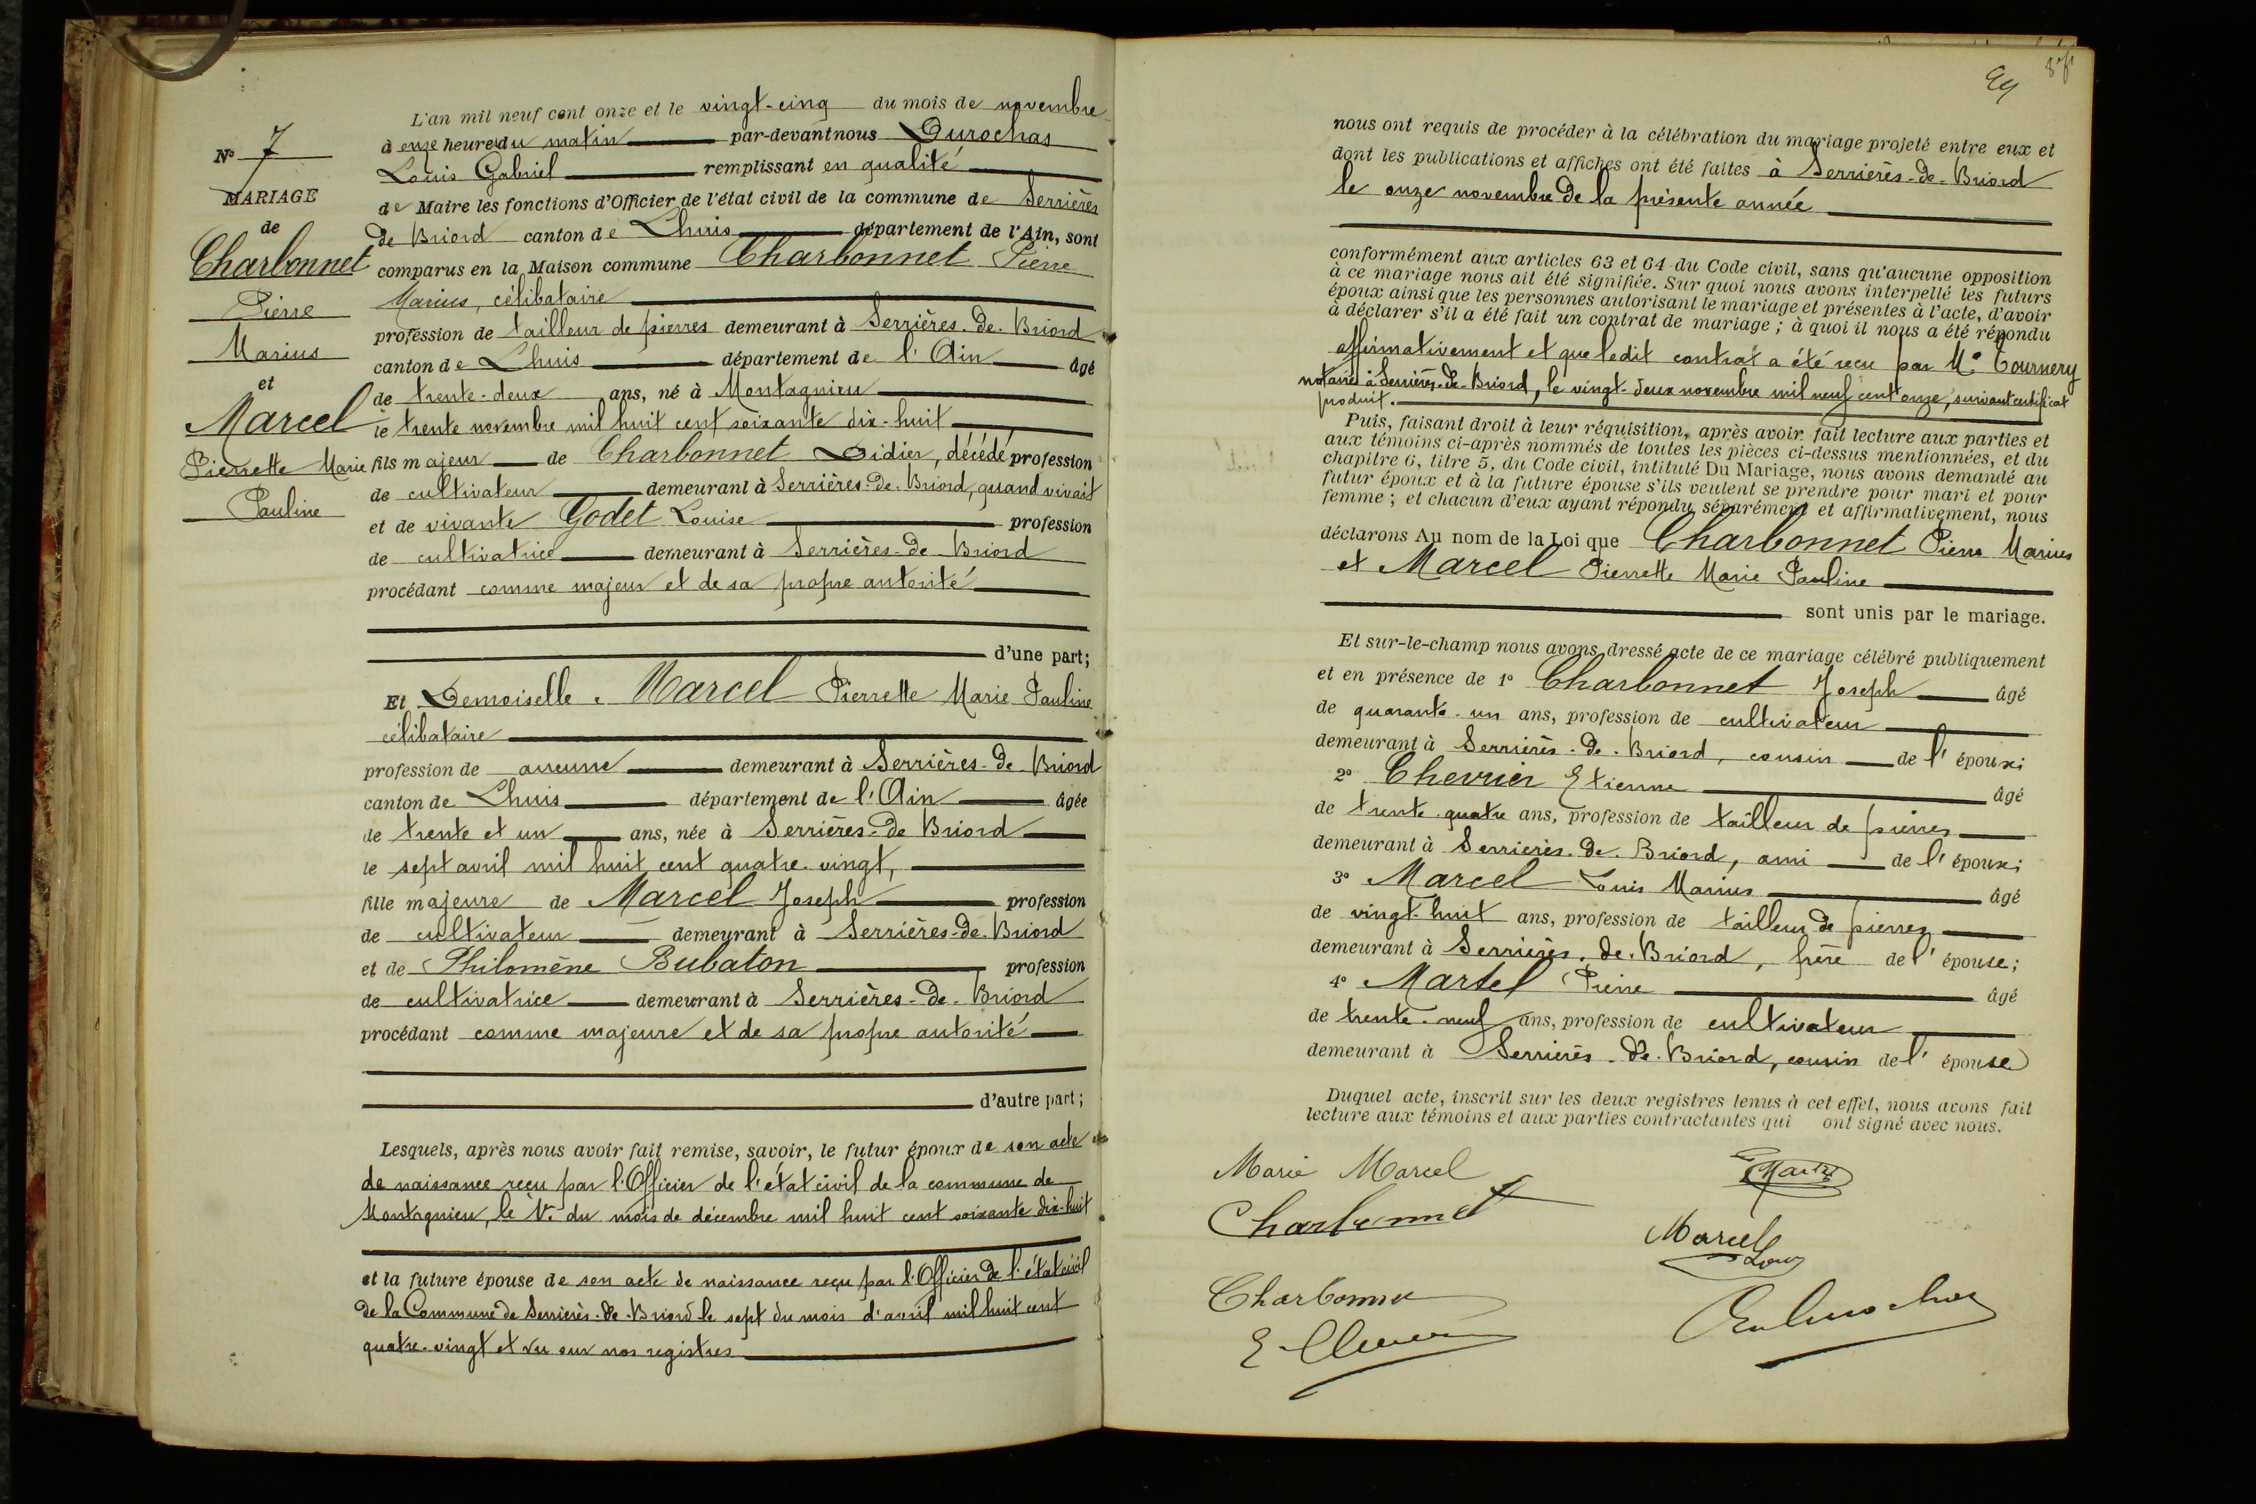 N° 7
MARIAGE
de
Charbonnet
Pierre
Marius
et
Marcel
Pierrette Marie
Pauline
L'an mil neuf cent onze et le vingt-cinq du mois de novembre
à onze heures du matin par-devant nous Durochas
Louis Gabriel remplissant en qualité
de Maire les fonctions d'Officier de l'état civil de la commune de Serrières
de Briord canton de Lhuis département de l'Ain, sont
comparus en la Maison commune Charbonnet Pierre
Marius, célibataire
profession de tailleur de pierres demeurant à Serrières-de-Briord
canton de Lhuis département de l'Ain âgé
de trente-deux ans, né à Montagnieu
le trente novembre mil huit cent soixante dix-huit
fils majeur de Charbonnet Didier, décédé profession
de cultivateur demeurant à Serrières-de-Briord, quand vivait
et de vivante Godet Louise profession
de cultivatrice demeurant à Serrières-de-Briord
procédant comme majeur et de sa propre autorité
d'une part;
Et Demoiselle. Marcel Pierrette Marie Pauline
célibataire
profession de aucune demeurant à Serrières-de-Briord
canton de Lhuis département de l'Ain âgée
de trente et un ans, née à Serrières-de-Briord
le sept avril mil huit cent quatre-vingt,
fille majeure de Marcel Joseph profession
de cultivateur demeurant à Serrières-de-Briord
et de Philomène Bubaton profession
de cultivatrice demeurant à Serrières-de-Briord
procédant comme majeure et de sa propre autorité
d'autre part;
Lesquels, après nous avoir fait remise, savoir, le futur époux de son acte
de naissance reçu par l'Officier de l'état civil de la commune de
Montagnieu, le 1er du mois de décembre mil huit cent soixante dix-huit
et la future épouse de son acte de naissance reçu par l'Officier de l'état civil
de la Commune de Serrières-de-Briord le sept du mois d'avril mil huit cent
quatre-vingt et vu sur nos registres
nous ont requis de procéder à la célébration du mariage projeté entre eux et
dont les publications et affiches ont été faites à Serrières-de-Briord
le onze novembre de la présente année
conformément aux articles 63 et 64 du Code civil, sans qu'aucune opposition
à ce mariage nous ait été signifiée. Sur quoi nous avons interpellé les futurs
époux ainsi que les personnes autorisant le mariage et présentes à l'acte, d'avoir
à déclarer s'il a été fait un contrat de mariage; à quoi il nous a été répondu
affirmativement et que ledit contrat a été reçu par Me Tournery
notaire à Serrières-de-Briord, le vingt-deux novembre mil neuf cent onze, suivant certificat
produit.
Puis, faisant droit à leur réquisition, après avoir fait lecture aux parties et
aux témoins ci-après nommés de toutes les pièces ci-dessus mentionnées, et du
chapitre 6, titre 5, du Code civil, intitulé Du Mariage, nous avons demandé au
futur époux et à la future épouse s'ils veulent se prendre pour mari et pour
femme; et chacun d'eux ayant répondu séparément et affirmativement, nous
déclarons Au nom de la Loi que Charbonnet Pierre Marius
et Marcel Pierrette Marie Pauline
sont unis par le mariage.
Et sur-le-champ nous avons dressé acte de ce mariage célébré publiquement
et en présence de 1° Charbonnet Joseph âgé
de quarante-un ans, profession de cultivateur
demeurant à Serrières-de-Briord, cousin de l'époux;
2° Chevrier Etienne âgé
de trente-quatre ans, profession de tailleur de pierres
demeurant à Serrières-de-Briord, ami de l'époux;
3° Marcel Louis Marius âgé
de vingt-huit ans, profession de tailleur de pierres
demeurant à Serrières-de-Briord, frère de l'épouse;
4° Martel Pierre âgé
de trente-neuf ans, profession de cultivateur
demeurant à Serrières-de-Briord, cousin de l'épouse
Duquel acte, inscrit sur les deux registres tenus à cet effet, nous avons fait
lecture aux témoins et aux parties contractantes qui ont signé avec nous.
Marie Marcel
Charbonnet
Marcel
Louis
Charbonnet